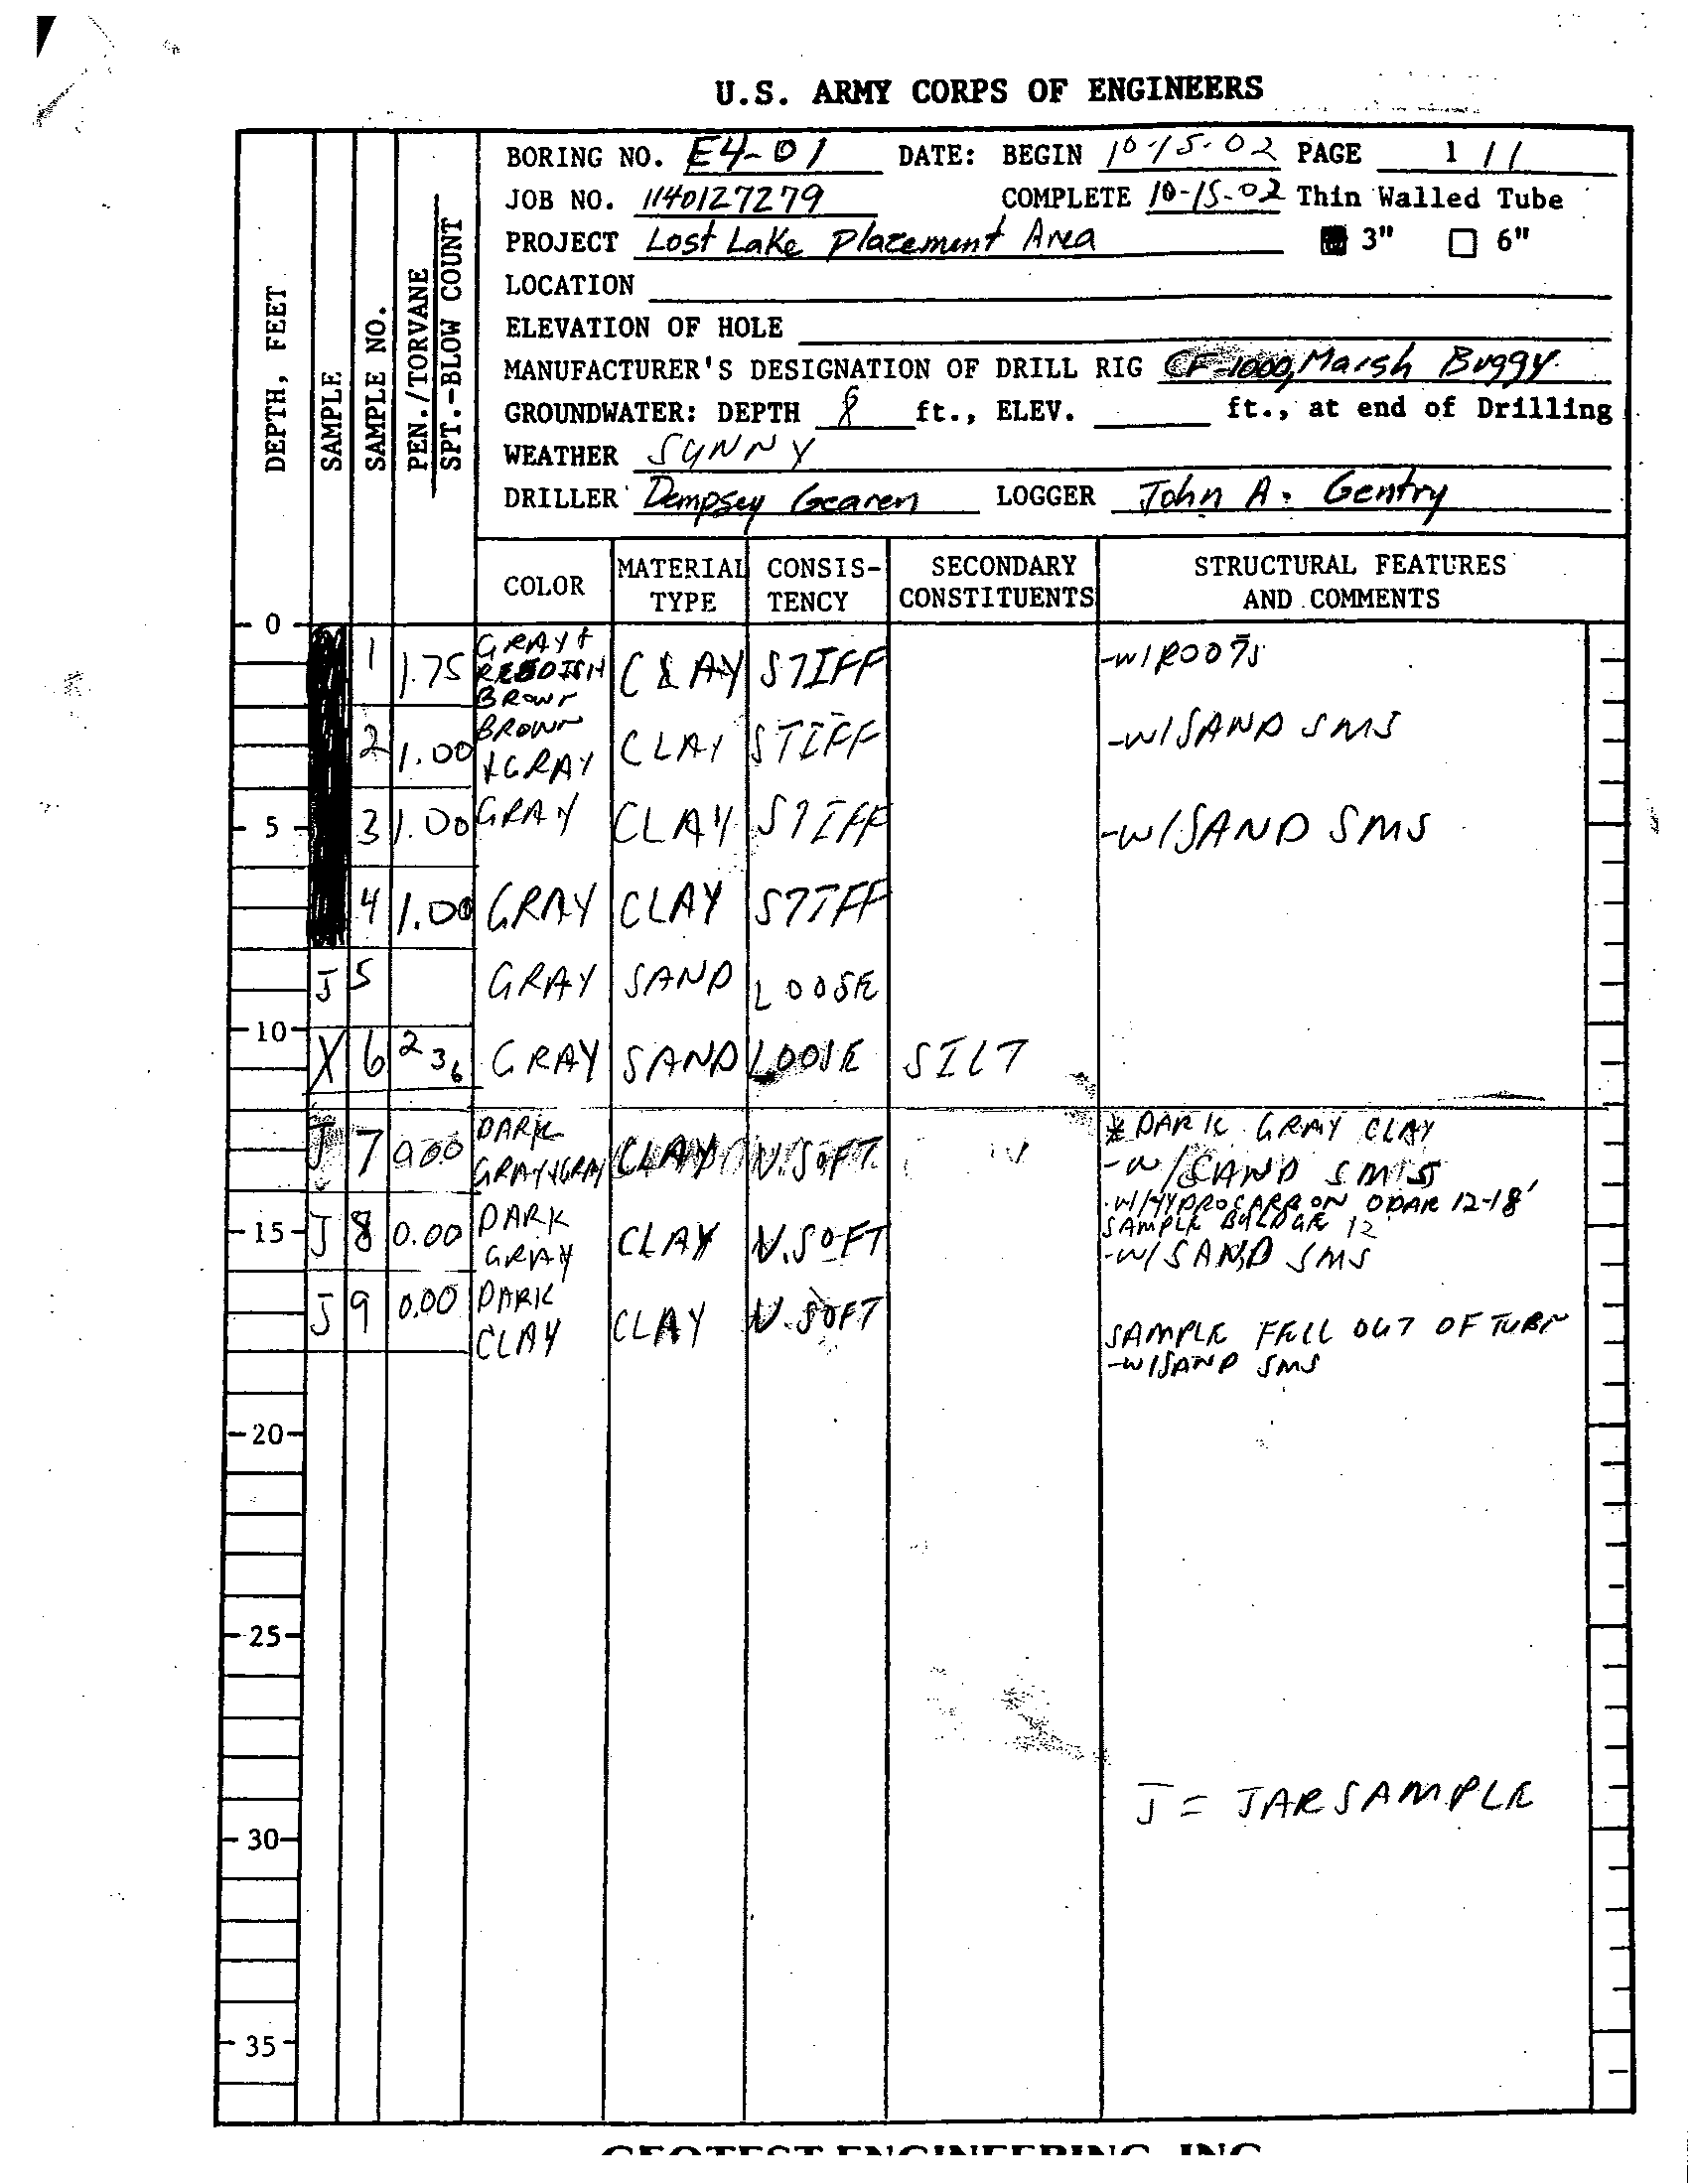 U.S. ARMY CORPS OF ENGINEERS
DEPTH, FEET
SAMPLE
SAMPLE NO.
PEN./TORVANE
SPT.-BLOW COUNT
BORING NO. E4-01 DATE: BEGIN 10-15-02 PAGE 1 / 1
JOB NO. 1140127279 COMPLETE 10-15-02 Thin Walled Tube
PROJECT Lost Lake Placement Area 3" 6"
LOCATION
ELEVATION OF HOLE
MANUFACTURER'S DESIGNATION OF DRILL RIG CF-1000, Marsh Buggy
GROUNDWATER: DEPTH 8 ft., ELEV. ft., at end of Drilling
WEATHER SUNNY
DRILLER Dempsey Gearen LOGGER John A. Gentry
COLOR MATERIAL TYPE CONSIS-TENCY SECONDARY CONSTITUENTS STRUCTURAL FEATURES AND COMMENTS
0
1 1.75 GRAY + REDDISH BROWN CLAY STIFF -W/ROOTS
2 1.00 BROWN +GRAY CLAY STIFF -W/SAND SMS
5 3 1.00 GRAY CLAY STIFF -W/SAND SMS
4 1.00 GRAY CLAY STIFF
J 5 GRAY SAND LOOSE
10 X 6 2 3 6 GRAY SAND LOOSE SILT
J 7 0.00 DARK GRAY+GRAY CLAY V.SOFT * DARK GRAY CLAY
-W/SAND SMS
-W/HYDROCARBON ODAR 12-18'
15 J 8 0.00 DARK GRAY CLAY V.SOFT SAMPLE 12
-W/SAND SMS
J 9 0.00 DARK CLAY CLAY V.SOFT SAMPLE FELL OUT OF TUBE
-W/SAND SMS
20
25
J = JAR SAMPLE
30
35
GEOTEST ENGINEERING, INC